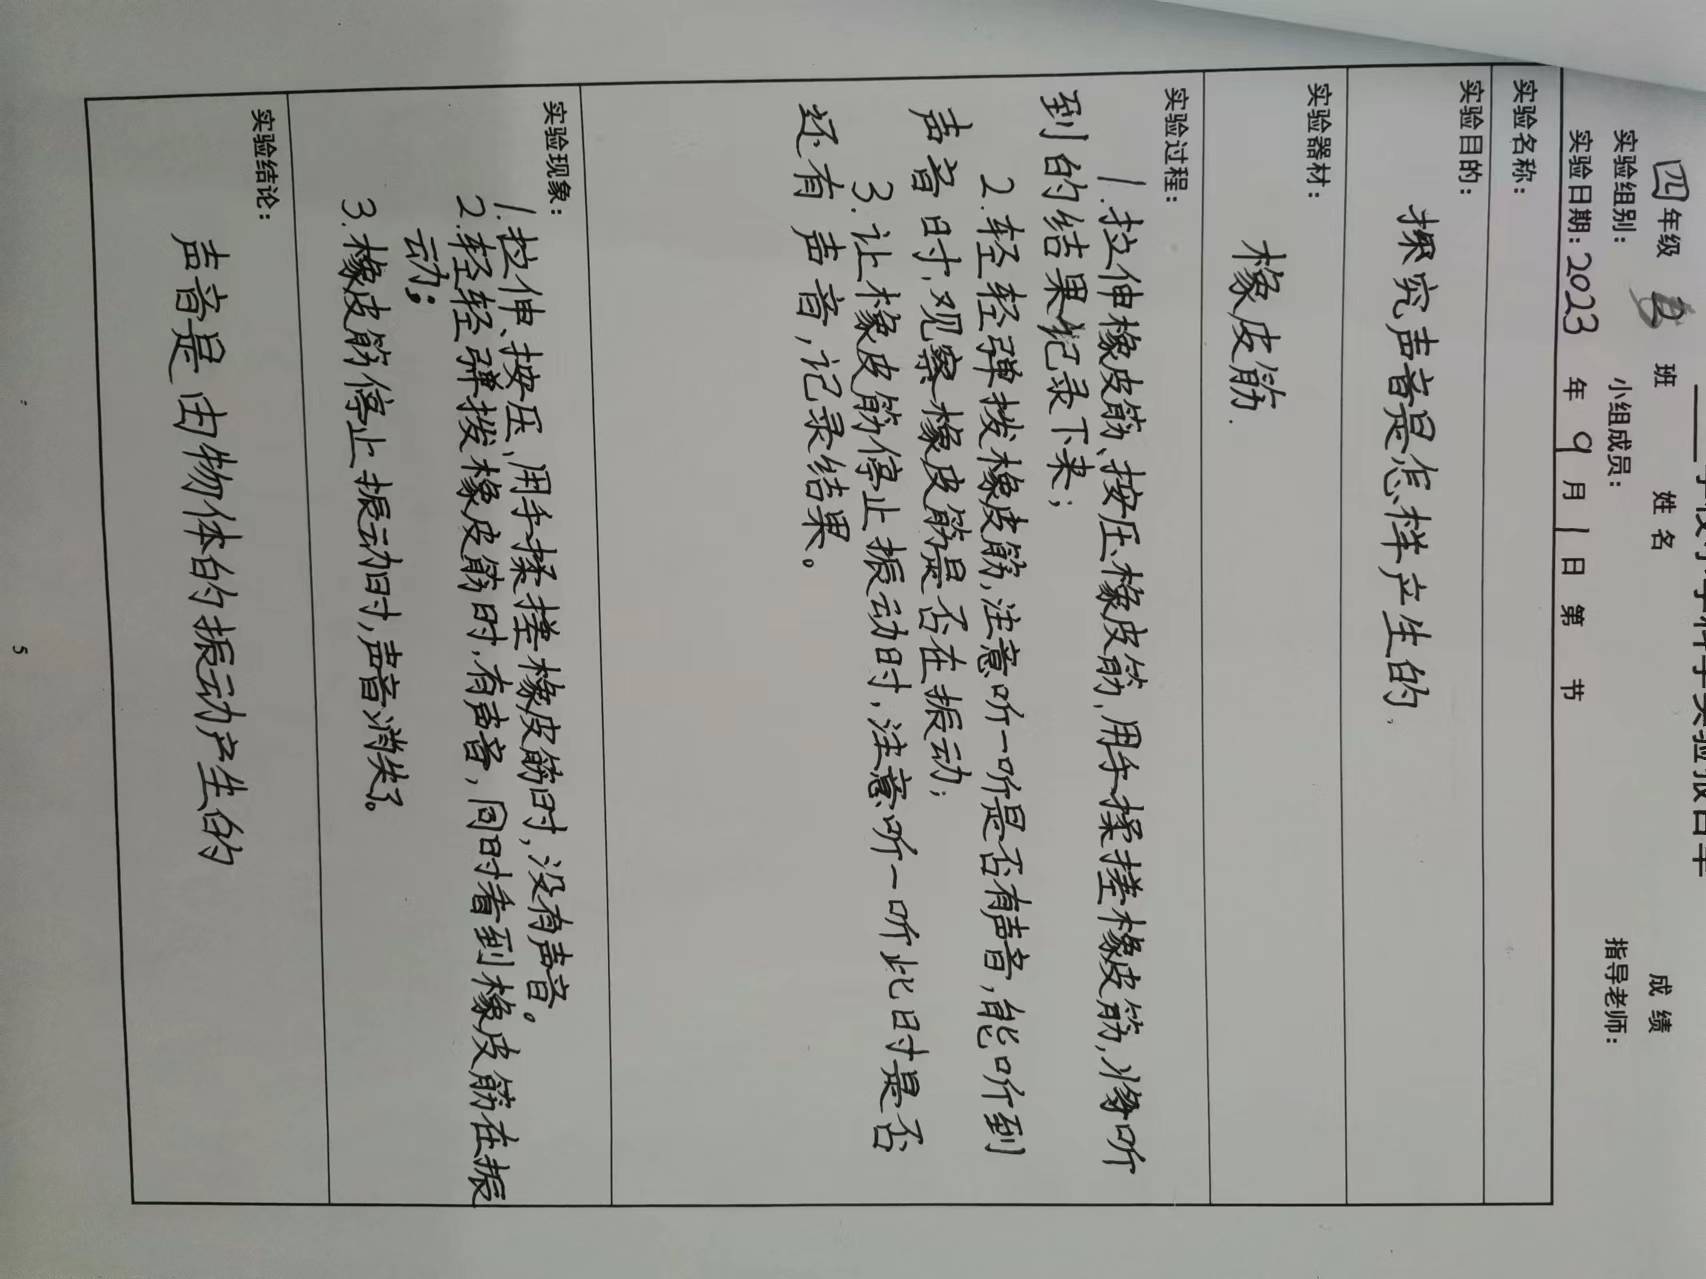 学校小学科学实验报告单
四年级 班 姓名 成绩
实验组别： 小组成员： 指导老师：
实验日期：2023 年 9 月 1 日 第 节
实验名称：
实验目的：
探究声音是怎样产生的.
实验器材：
橡皮筋.
实验过程：
1.拉伸橡皮筋、按压橡皮筋、用手揉搓橡皮筋,将听
到的结果记录下来；
2.轻轻弹拨橡皮筋,注意听一听是否有声音,能听到
声音时,观察橡皮筋是否在振动；
3.让橡皮筋停止振动时,注意听一听此时是否
还有声音,记录结果。
实验现象：
1.拉伸、按压、用手揉搓橡皮筋时,没有声音。
2.轻轻弹拨橡皮筋时,有声音,同时看到橡皮筋在振
动；
3.橡皮筋停止振动时,声音消失了。
实验结论：
声音是由物体的振动产生的
5